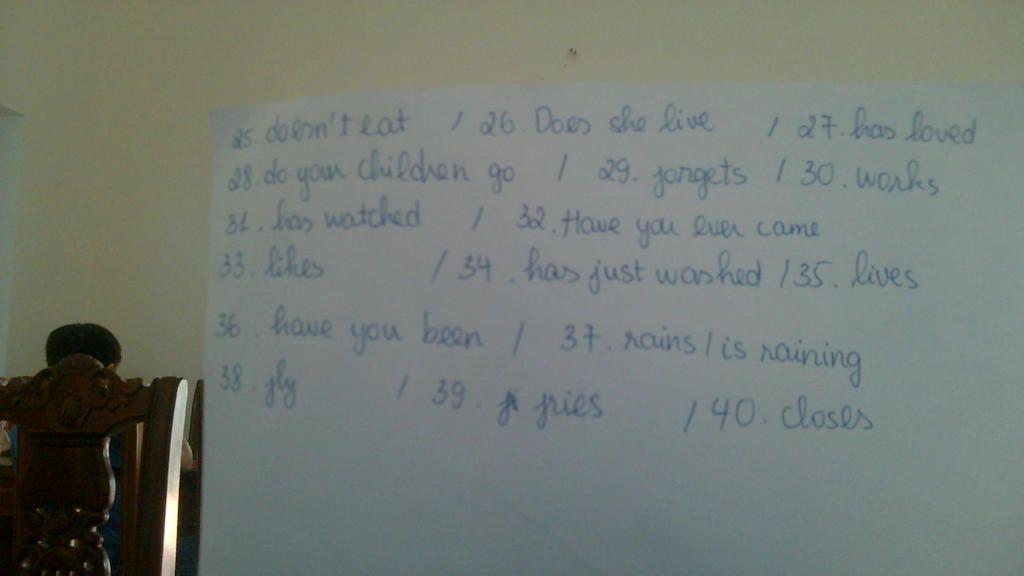 25. doesn't eat / 26. Does she live / 27. has loved
28. do your children go / 29. forgets / 30. works
31. has watched / 32. Have you ever came
33. likes / 34. has just washed / 35. lives
36. have you been / 37. rains / is raining
38. fly / 39. fries / 40. closes